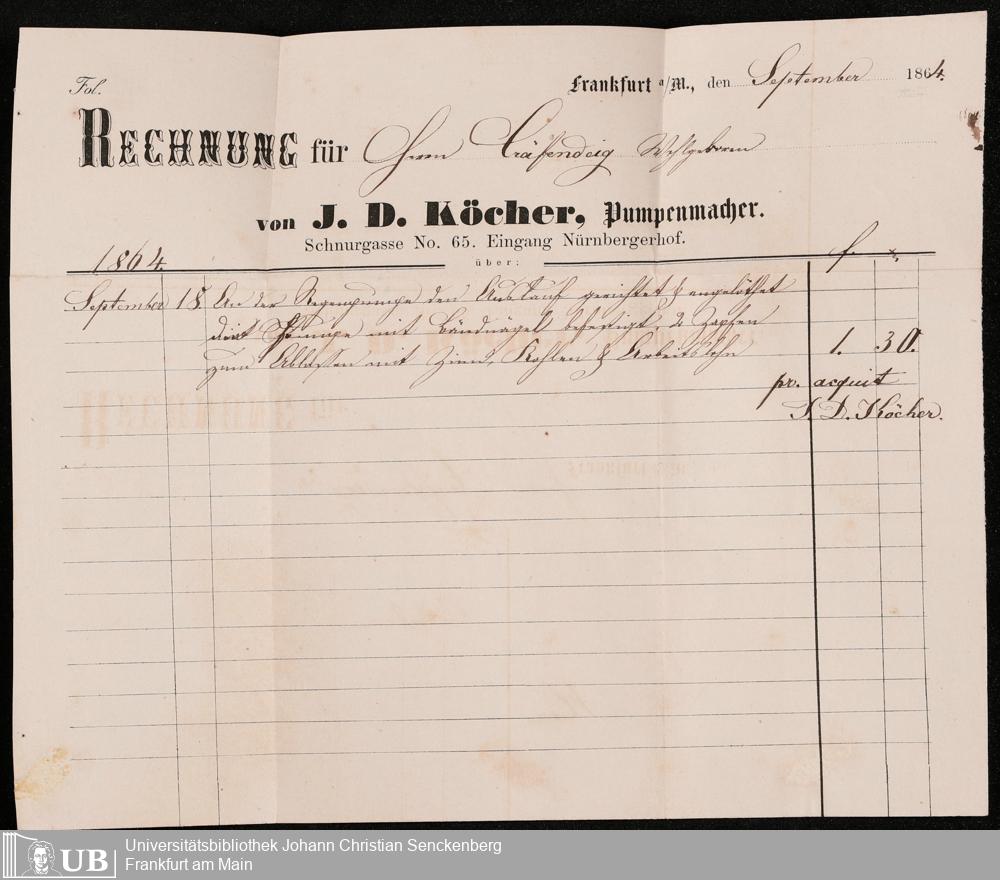 Fol.
Frankfurt a/M., den September 1864.
RECHNUNG für Herrn Wohlgeboren
von J. D. Köcher, Pumpenmacher.
Schnurgasse No. 65. Eingang Nürnbergerhof.
über:
1864. f. x.
September 18. An der Regenpumpe den Auslauf gerichtet & angelöthet
die Pumpe mit Bändnägel befestigt, 2 Zapfen
zum Ablassen mit Zinn, Kohlen & Arbeitslohn 1. 30.
pr. acquit
J. D. Köcher.
UB
Universitätsbibliothek Johann Christian Senckenberg
Frankfurt am Main